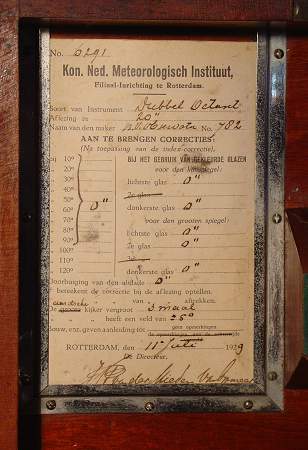 No. 6291
Kon. Ned. Meteorologisch Instituut,
Filiaal-Inrichting te Rotterdam.
Soort van Instrument Dubbel Octant
Aflezing in 20"
Naam van den maker No. 782
AAN TE BRENGEN CORRECTIES:
(Na toepassing van de index-correctie)
bij 10°
20°
30°
40°
50°
60° 0"
70°
80°
90°
100°
110°
120°
BIJ HET GEBRUIK VAN GEKLEURDE GLAZEN
voor den kimspiegel:
lichtste glas 0"
2e glas
donkerste glas 0"
voor den grooten spiegel:
lichtste glas 0"
2e glas 0"
3e glas
donkerste glas 0"
Doorbuiging van den alidade 0"
berekende correctie bij de aflezing optellen.
aftrekken.
De kijker vergroot 3 maal
heeft een veld van
bouw, enz. geven aanleiding tot geen opmerkingen
ROTTERDAM, 11 Juli 1929
De Directeur,